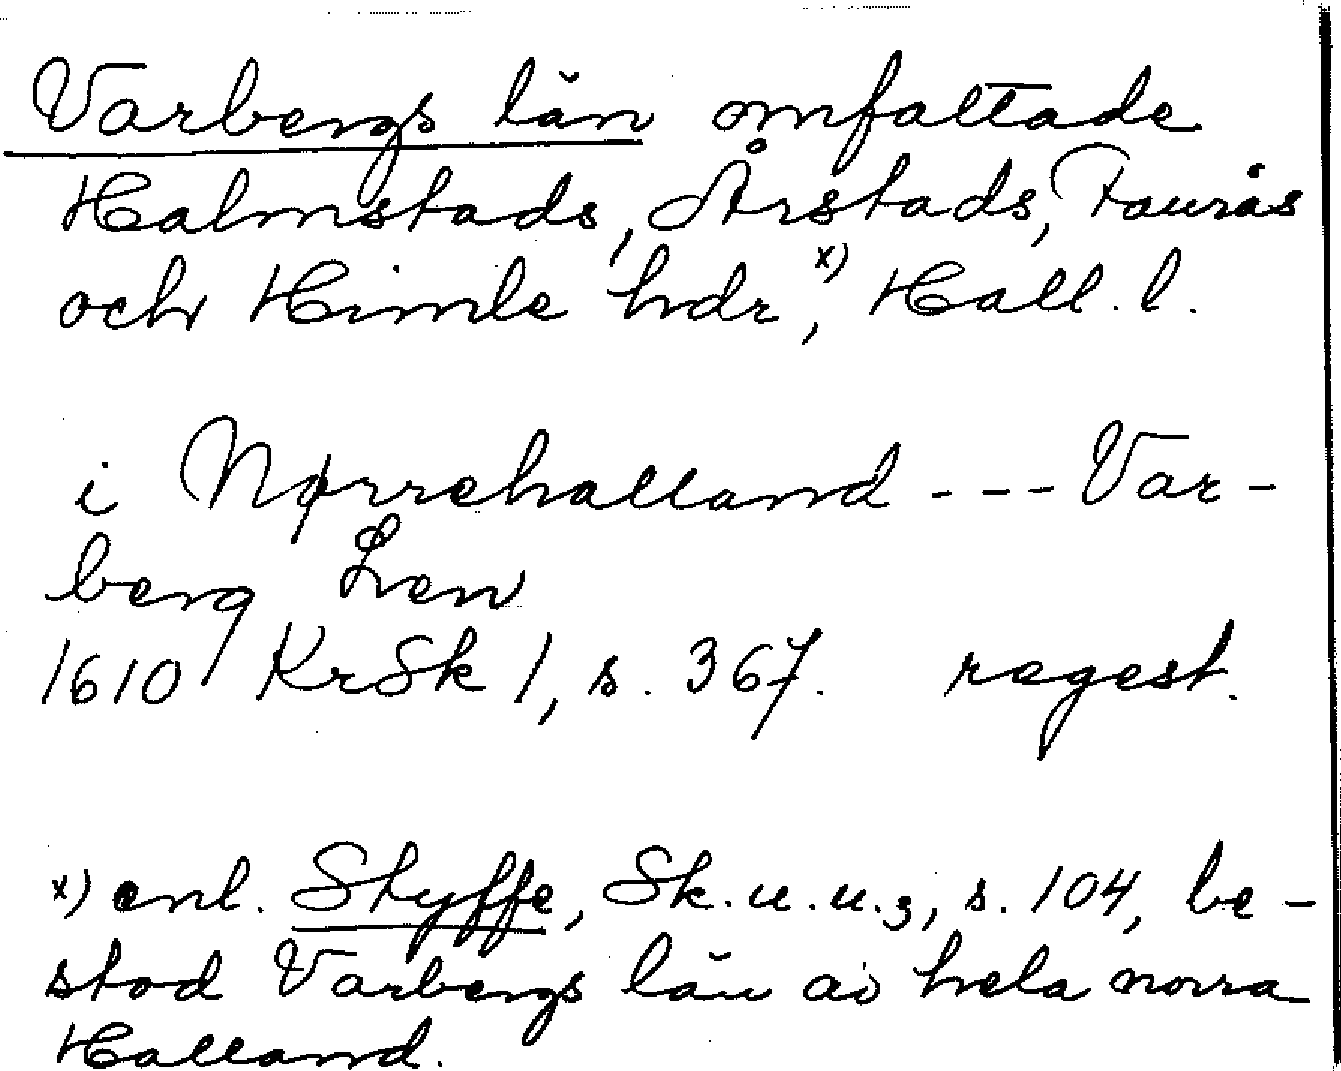 Varbergs län omfattade
Halmstads, Årstads, Faurås
och Himle hdr,x) Hall. l.
i Nørrehalland - - - Var-
berg Len
1610 KrSk 1, s. 367. regest.
x) enl. Styffe, Sk. u. u.3, s. 104, be-
stod Varbergs län av hela norra
Halland.